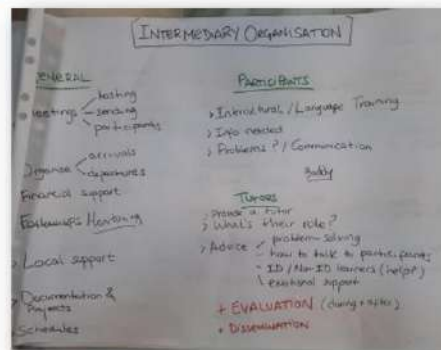 INTERMEDIARY ORGANISATION
GENERAL
Meetings
hosting
sending
participants
Organise
arrivals
departures
Financial support
Monitoring
Local support
Documentation &
Schedules
PARTICIPANTS
Intercultural / Language Training
Info needed
Problems? / Communication
Buddy
TUTORS
Provide a tutor
What's their role?
Advice
problem-solving
how to talk to participants
ID / Non-ID learners (help?)
emotional support
+ EVALUATION (during + after)
+ DISSEMINATION